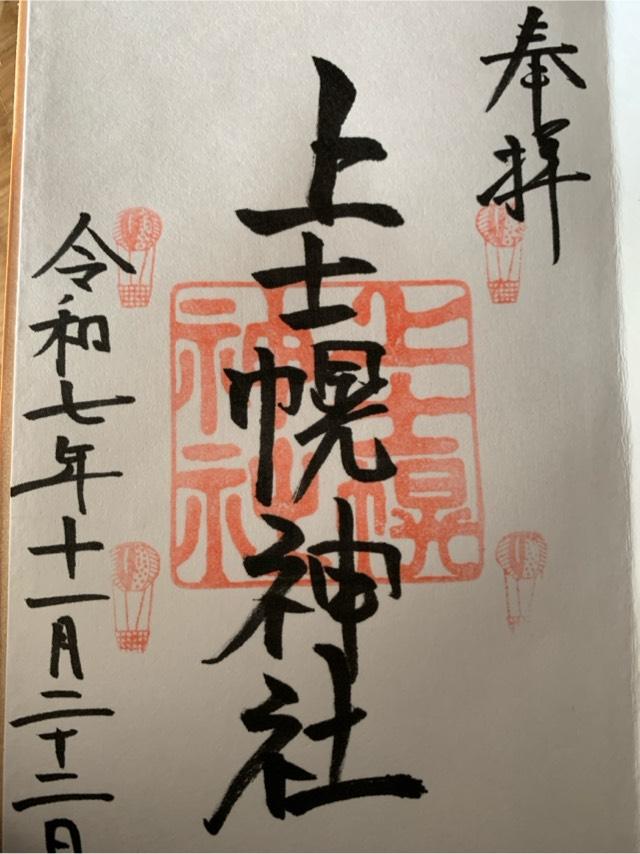 奉拝
上士幌神社
上士幌
神社
令和七年十一月二十二日